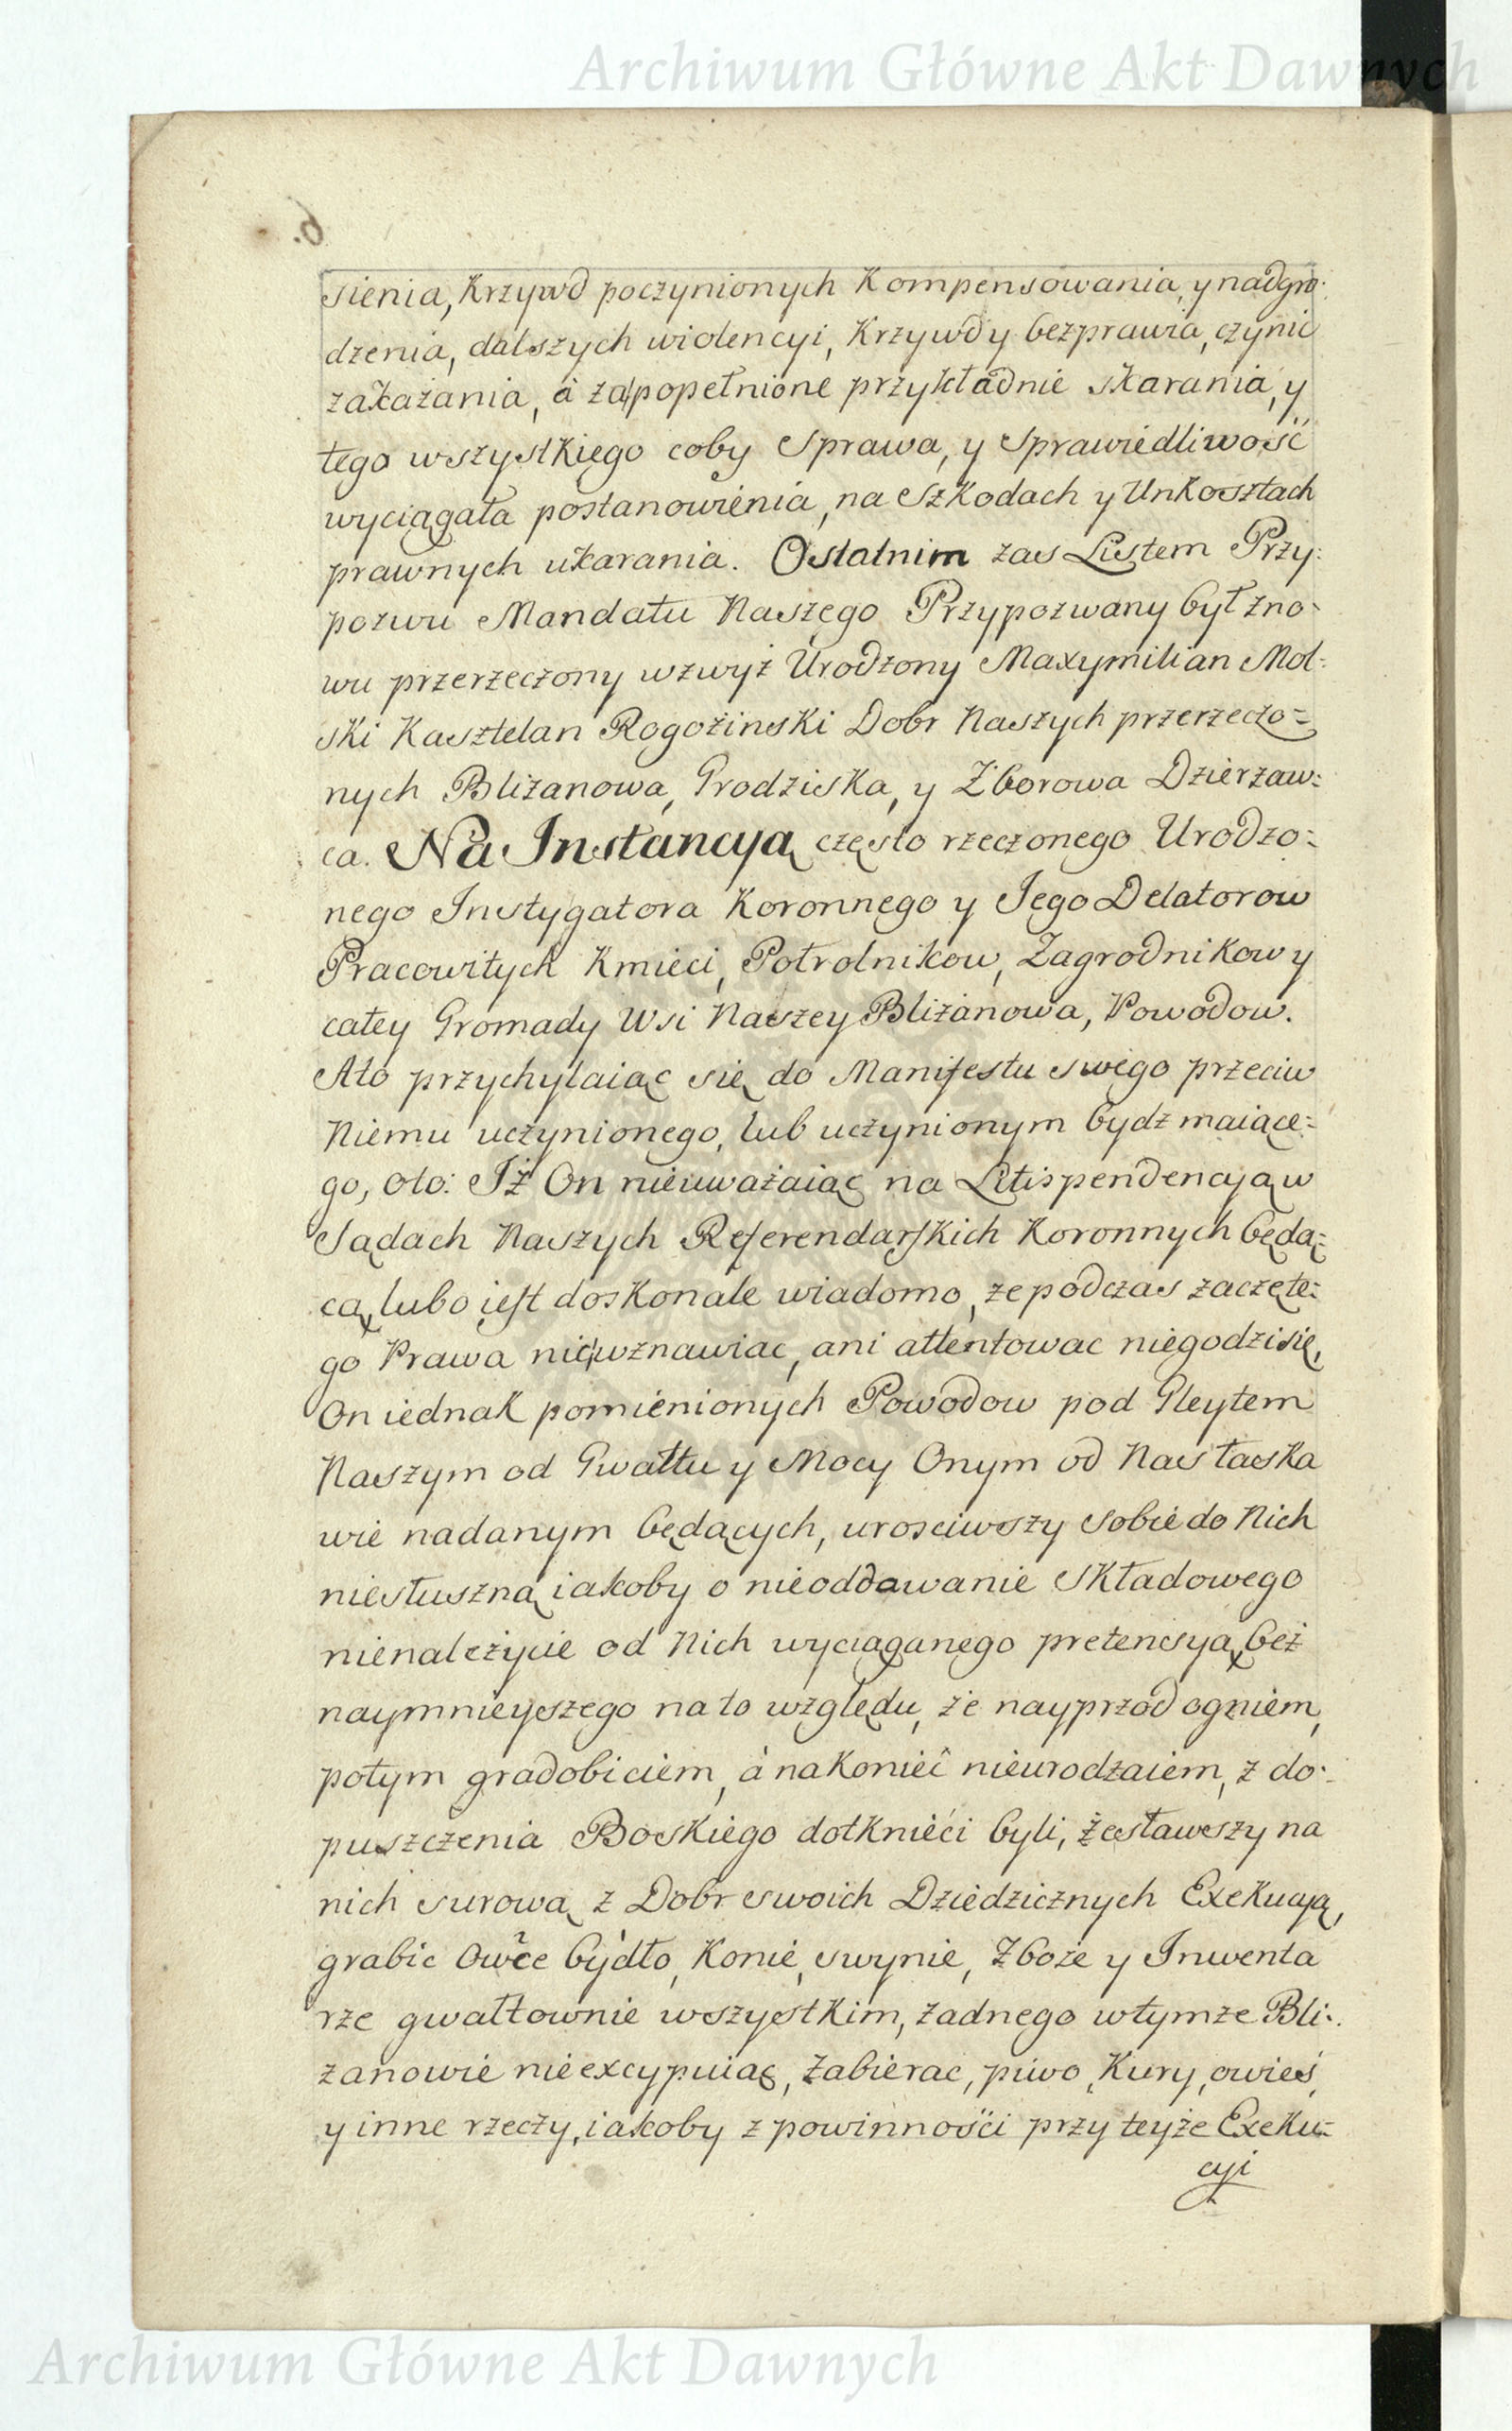 Archiwum Główne Akt Dawnych
6.
sienia, Krzywd poczynionych Kompensowania, y nadgro:
dzenia, dalszych wiolencyi, Krzywd y bezprawia, czynic
zakazania, à za popełnione przykładnie skarania, y
tego wszystkiego coby Sprawa, y Sprawiedliwość
wyciągała postanowienia, na Szkodach y Unkosztach
prawnych ukarania. Ostatnim zas Listem Przy:
pozwu Mandatu Naszego Przypozwany był zno-
wu przerzeczony wzwyż Urodzony Maxymilian Mol:
ski Kasztelan Rogoziński Dobr Naszych przerzeczo=
nych Blizanowa, Grodziska, y Zborowa Dzierzaw:
ca. Na Instancyą często rzeczonego Urodzo:
nego Instygatora Koronnego y Jego Delatorow
Pracowitych Kmieci, Połrolnikow, Zagrodnikow y
całey Gromady Wsi Naszey Bliżanowa, Powodow.
Ato przychylaiąc się do Manifestu swego przeciw
Niemu uczynionego, lub uczynionym bydz maiące:
go, oto: Iż On nieuważaiąc na Litispendencyą w
Sądach Naszych Referendarskich Koronnych będą:
cą, lubo iest doskonale wiadomo, ze podczas zaczęte:
go Prawa nic wznawiac, ani attentowac niegodzi się,
On iednak pomienionych Powodow pod Gleytem
Naszym od Gwałtu y Mocy Onym od Nas łaska
wie nadanym będących, urosciwszy sobie do Nich
niesłuszną iakoby o nieoddawanie Składowego
nienależycie od Nich wyciąganego pretensyą, bez
naymnieyszego na to względu, że nayprzod ogniem,
potym gradobiciem, à nakoniec nieurodzaiem, z do:
puszczenia Boskiego dotknięci byli, zesławszy na
nich surową z Dobr swoich Dziedzicznych Exekucyą,
grabic Owce bydło, Konie, swynie, Zboże y Inwenta
rze gwałtownie wszystkim, żadnego wtymze Bli:
zanowie nieexcypuiąc, Zabierac, piwo, Kury, owies,
y inne rzeczy, iakoby z powinności przy teyże Exeku=
cyi
Archiwum Główne Akt Dawnych